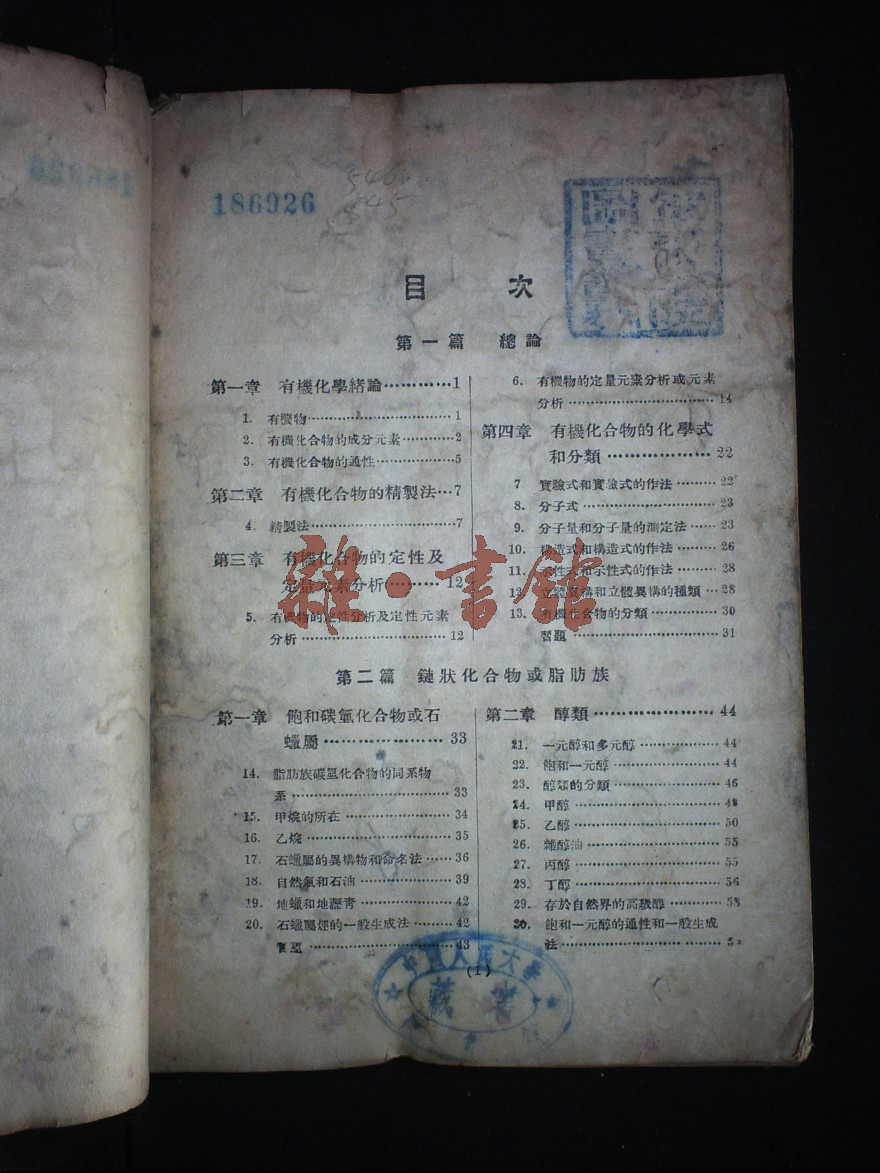 186926
546
845
目 次
第一篇 總論
第一章 有機化學緒論…………1
1. 有機物……………………………1
2. 有機化合物的成分元素………2
3. 有機化合物的通性……………5
第二章 有機化合物的精製法…7
4. 精製法……………………………7
第三章 有機化合物的定性及
定量元素分析………12
5. 有機物的定性分析及定性元素
分析……………………………12
6. 有機物的定量元素分析或元素
分析……………………………14
第四章 有機化合物的化學式
和分類…………………22
7 實驗式和實驗式的作法………22
8. 分子式……………………………23
9. 分子量和分子量的測定法……23
10. 構造式和構造式的作法………26
11. 示性式和示性式的作法………28
12. 立體異構和立體異構的種類…28
13. 有機化合物的分類……………30
習題………………………………31
第二篇 鏈狀化合物或脂肪族
第一章 飽和碳氫化合物或石
蠟屬…………………33
14. 脂肪族碳氫化合物的同系物
系………………………………33
15. 甲烷的所在……………………34
16. 乙烷……………………………35
17. 石蠟屬的異構物和命名法……36
18. 自然氣和石油…………………39
19. 地蠟和地瀝青…………………42
20. 石蠟屬烴的一般生成法………42
習題……………………………43
第二章 醇類…………………44
21. 一元醇和多元醇………………44
22. 飽和一元醇……………………44
23. 醇類的分類……………………46
24. 甲醇……………………………48
25. 乙醇……………………………50
26. 雜醇油…………………………55
27. 丙醇……………………………55
28. 丁醇……………………………56
29. 存於自然界的高級醇…………58
30. 飽和一元醇的通性和一般生成
法………………………………
(1)
中國人民大學
藏書
雜·書館